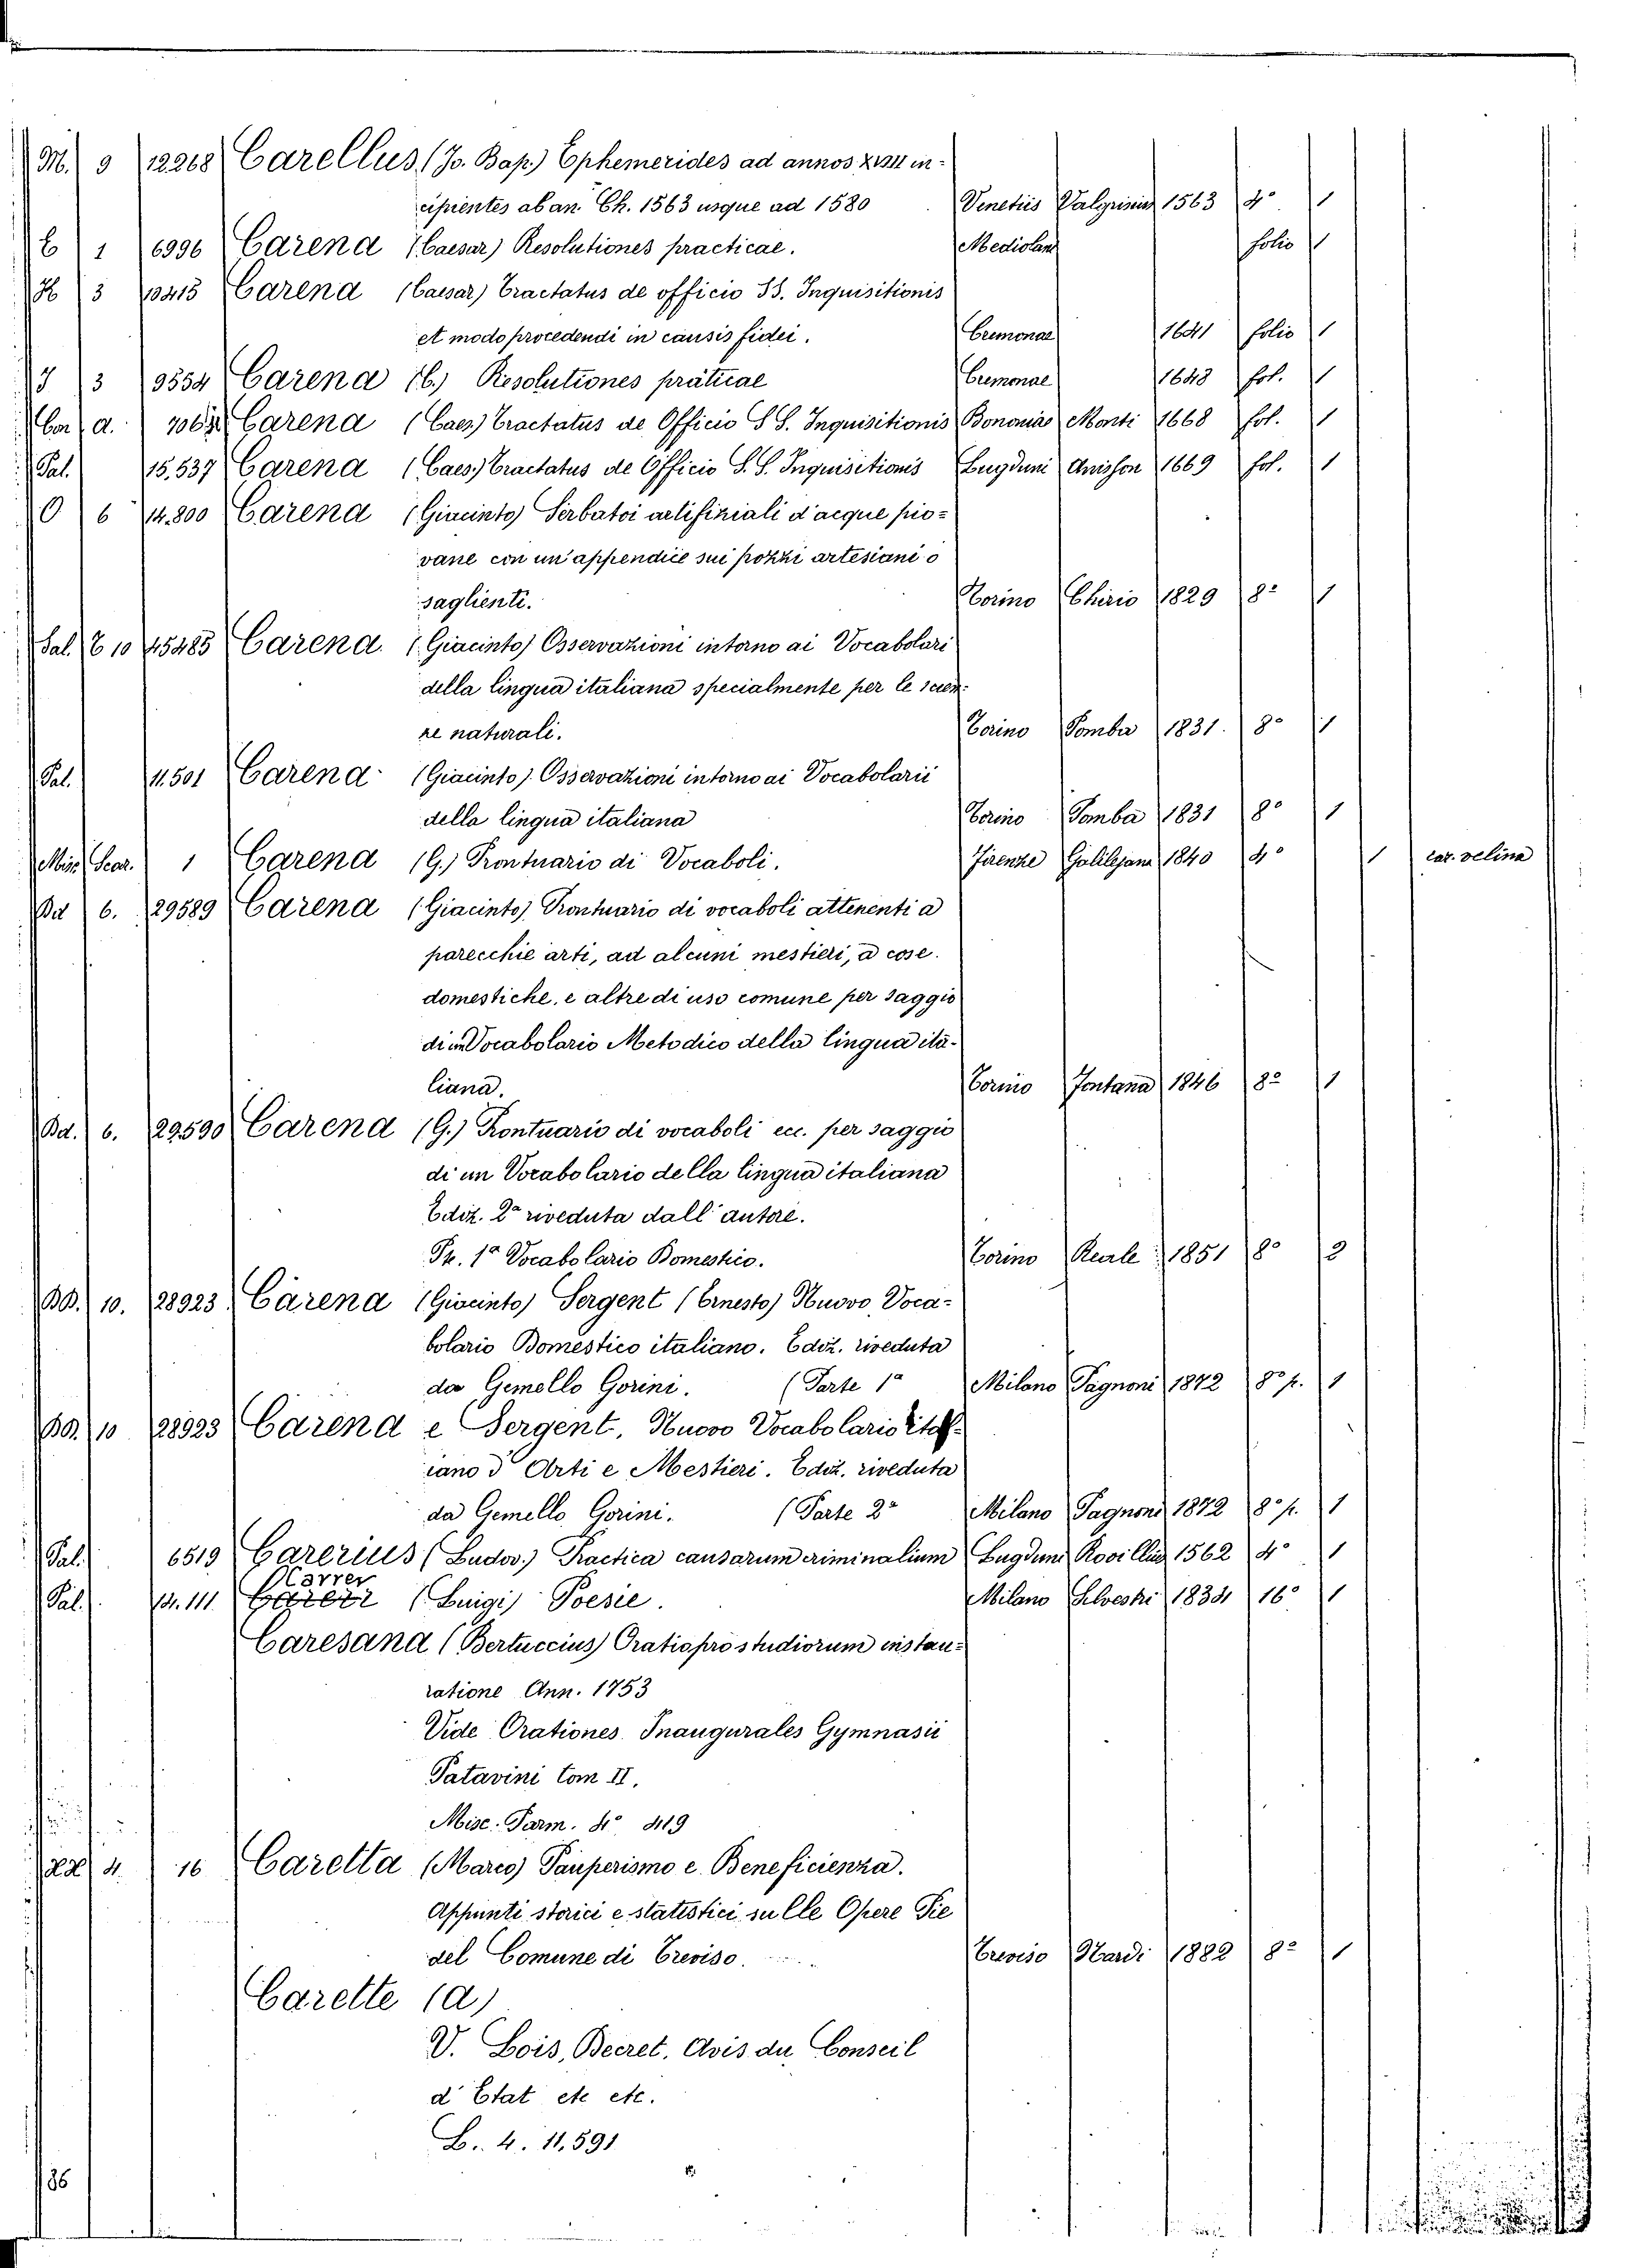 M. 9 12268 Carellus (Jo. Bap.) Ephemerides ad annos XVIII in-
cipientes ab an. Ch. 1563 usque ad 1580 Venetiis Valgrisius 1563 4° 1
C 1 6996 Carena (Caesar) Resolutiones practicae. Mediolani folio 1
H 3 10415 Carena (Caesar) Tractatus de officio SS. Inquisitionis
et modo procedendi in causis fidei. Cremonae 1641 folio 1
3 9554 Carena (C.) Resolutiones praticae Cremonae 1648 fol. 1
Cor d. Carena (Caes.) Tractatus de Officio S S. Inquisitionis Bononiae Monti 1668 fol. 1
Pal. 15,537 Carena (Caes.) Tractatus de Officio S. S. Inquisitionis Lugduni Anisson 1669 fol. 1
O 6 14.800 Carena (Giacinto) Serbatoi artifiziali d'acque pio-
vane con un'appendice sui pozzi artesiani o
saglienti. Torino Chirio 1829 8° 1
Sal. E 10 45485 Carena (Giacinto) Osservazioni intorno ai Vocabolari
della lingua italiana specialmente per le scien-
ze naturali. Torino Pomba 1831. 8° 1
Pal. 11.501 Carena (Giacinto) Osservazioni intorno ai Vocabolarii
della lingua italiana Torino Pomba 1831 8° 1
Mis. Scar. 1 Carena (G.) Prontuario di Vocaboli. Firenze Galilejana 1840 4° 1 car. velina
Bd 6. 29589 Carena (Giacinto) Prontuario di vocaboli attenenti a
parecchie arti, ad alcuni mestieri, a cose
domestiche, e altre di uso comune per saggio
di un Vocabolario Metodico della lingua ita-
liana. Torino Fontana 1846 8° 1
Bd. 6. 29590 Carena (G.) Prontuario di vocaboli ecc. per saggio
di un Vocabolario della lingua italiana
Ediz. 2ª riveduta dall'autore.
Pt. 1ª Vocabolario Domestico. Torino Reale 1851 8° 2
BB. 10. 28923 Carena (Giacinto) Sergent (Ernesto) Nuovo Voca-
bolario Domestico italiano. Ediz. riveduta
da Gemello Gorini. (Parte 1ª Milano Pagnoni 1872 8° p. 1
BB. 10 28923 Carena e Sergent, Nuovo Vocabolario ital-
iano d'Arti e Mestieri. Ediz. riveduta
da Gemello Gorini. (Parte 2ª Milano Pagnoni 1872 8° p. 1
Pal. 6519 Carerius (Ludov.) Practica causarum criminalium Lugduni Rovillius 1562 4° 1
Carrer
Pal. 12.111 Carrer (Luigi) Poesie. Milano Silvestri 1834 16° 1
Caresana (Bertuccius) Oratio pro studiorum instau-
ratione Ann. 1753
Vide Orationes Inaugurales Gymnasii
Patavini tom II.
Misc. Parm. 4° 419
4. 16 Caretta (Marco) Pauperismo e Beneficienza.
Appunti storici e statistici sulle Opere Pie
del Comune di Treviso. Treviso Nardi 1882 8° 1
Carette (A)
V. Lois, Decret, Avis du Conseil
d'Etat etc etc.
L. 4. 11.591
86